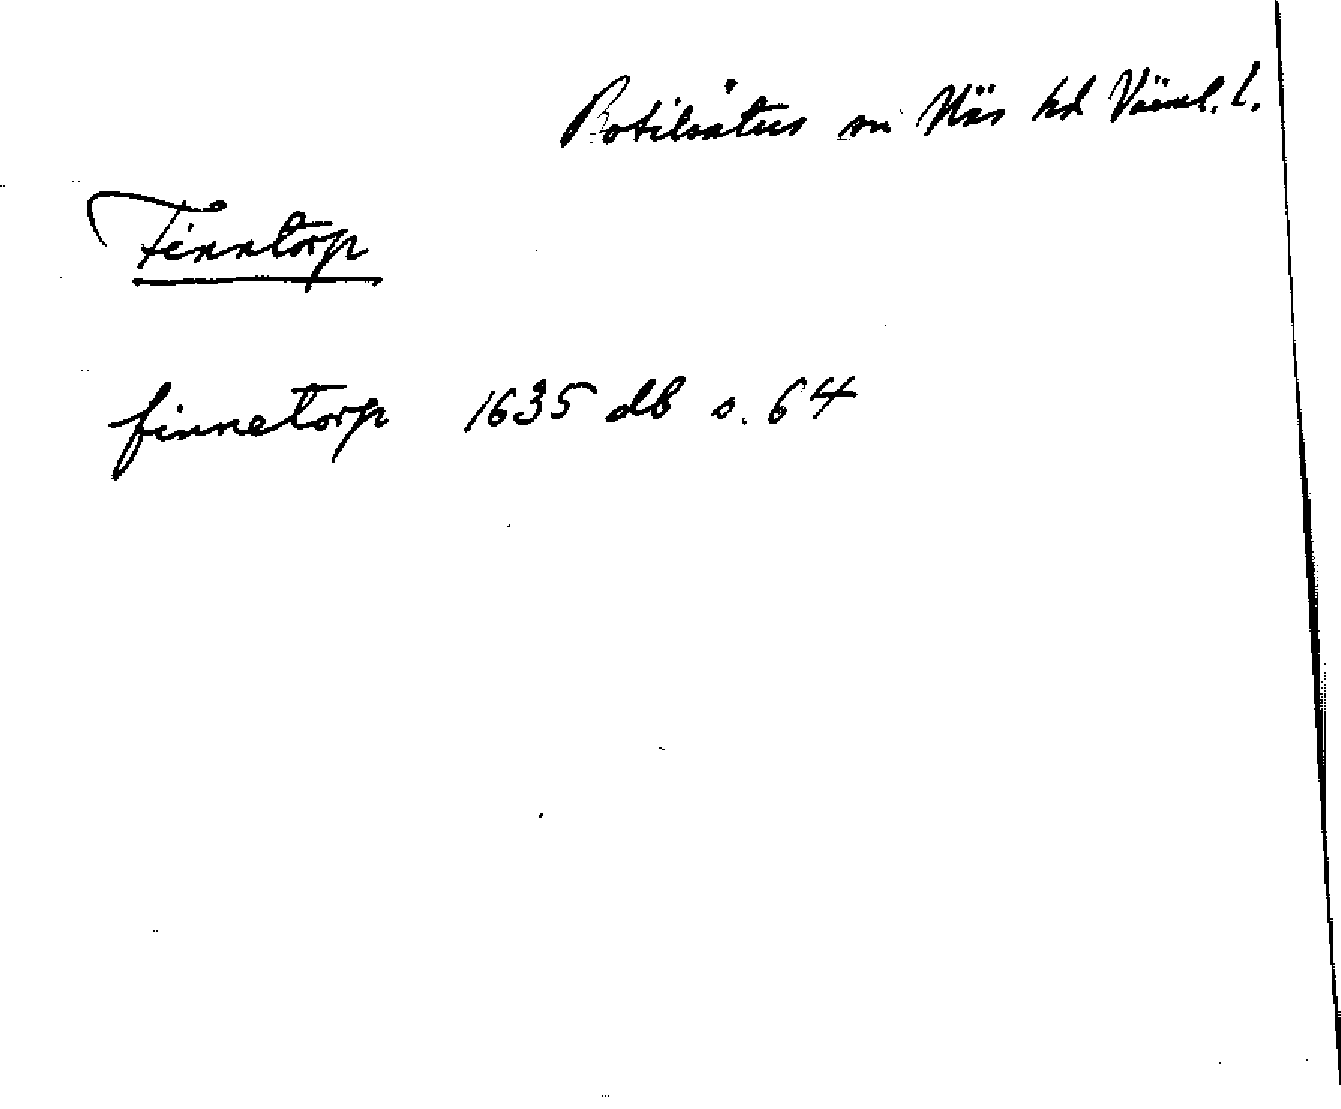 Botilsäters sn Näs hd Värml. l.
Finntorp
finnetorp 1635 db s. 64